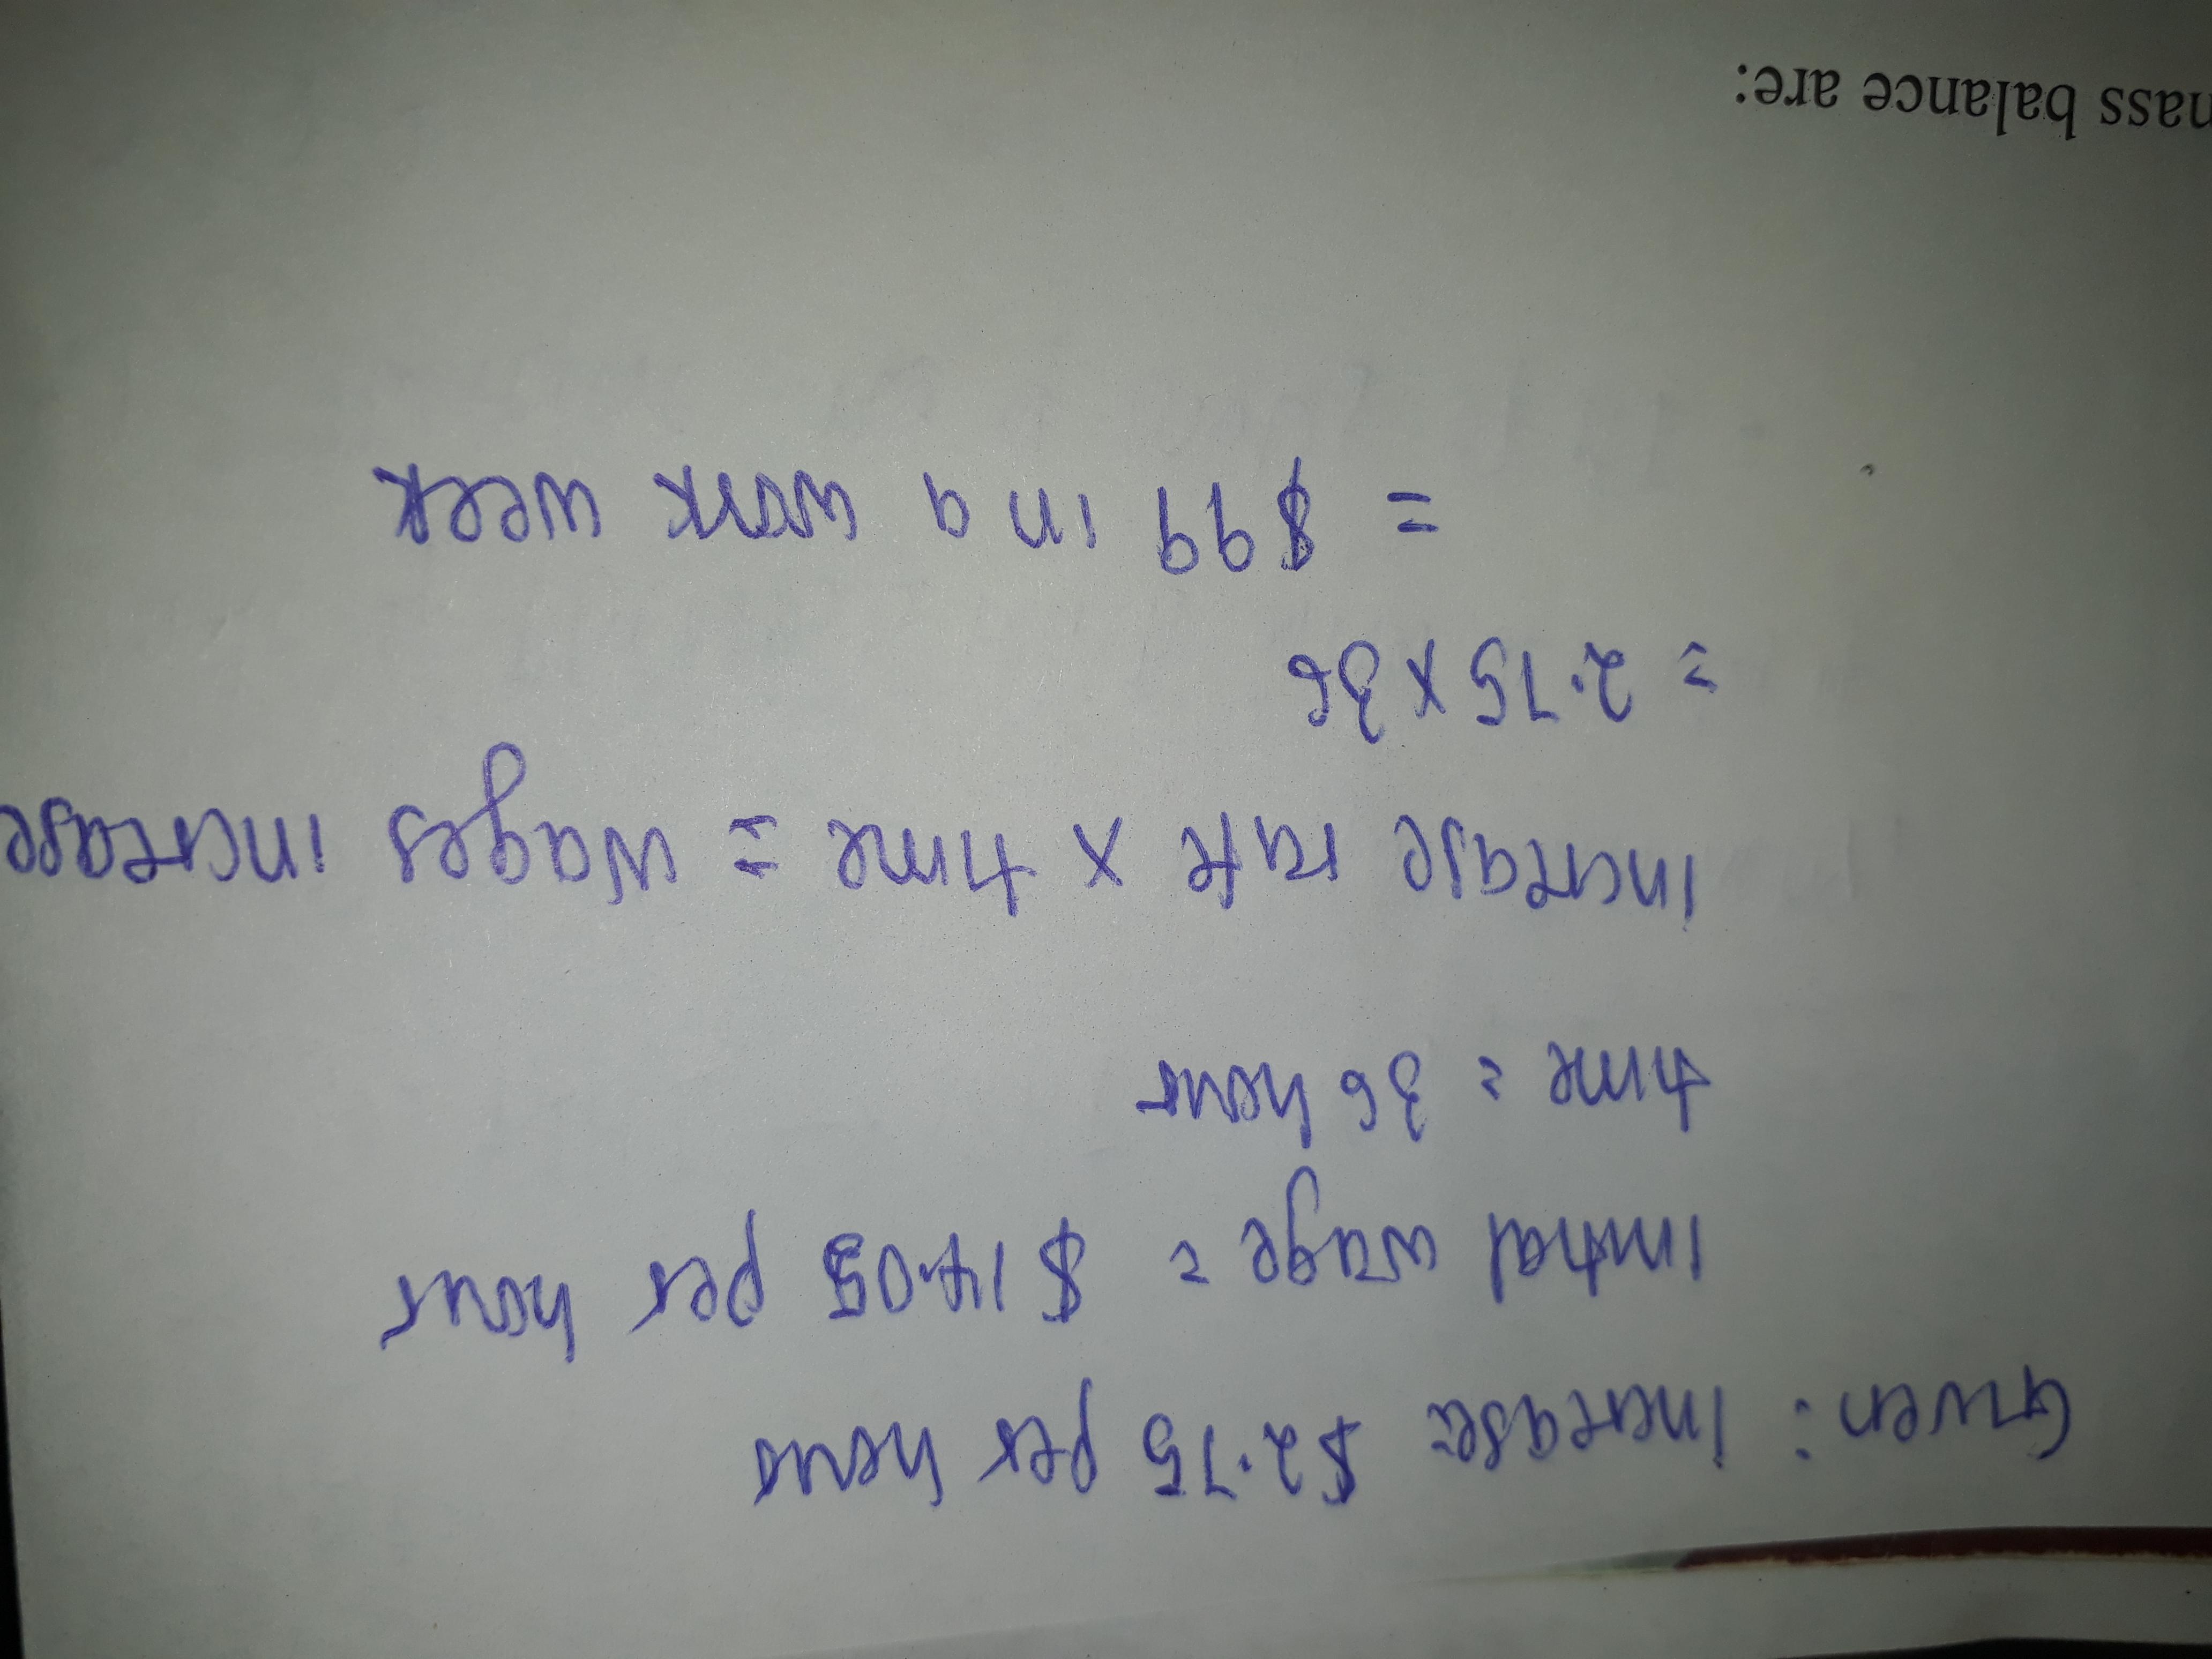 Given: Increase $2.75 per hour
Initial wage = $14.05 per hour
time = 36 hour
Increase rate x time = wages increase
= 2.75 x 36
= $99 in a work week
mass balance are: